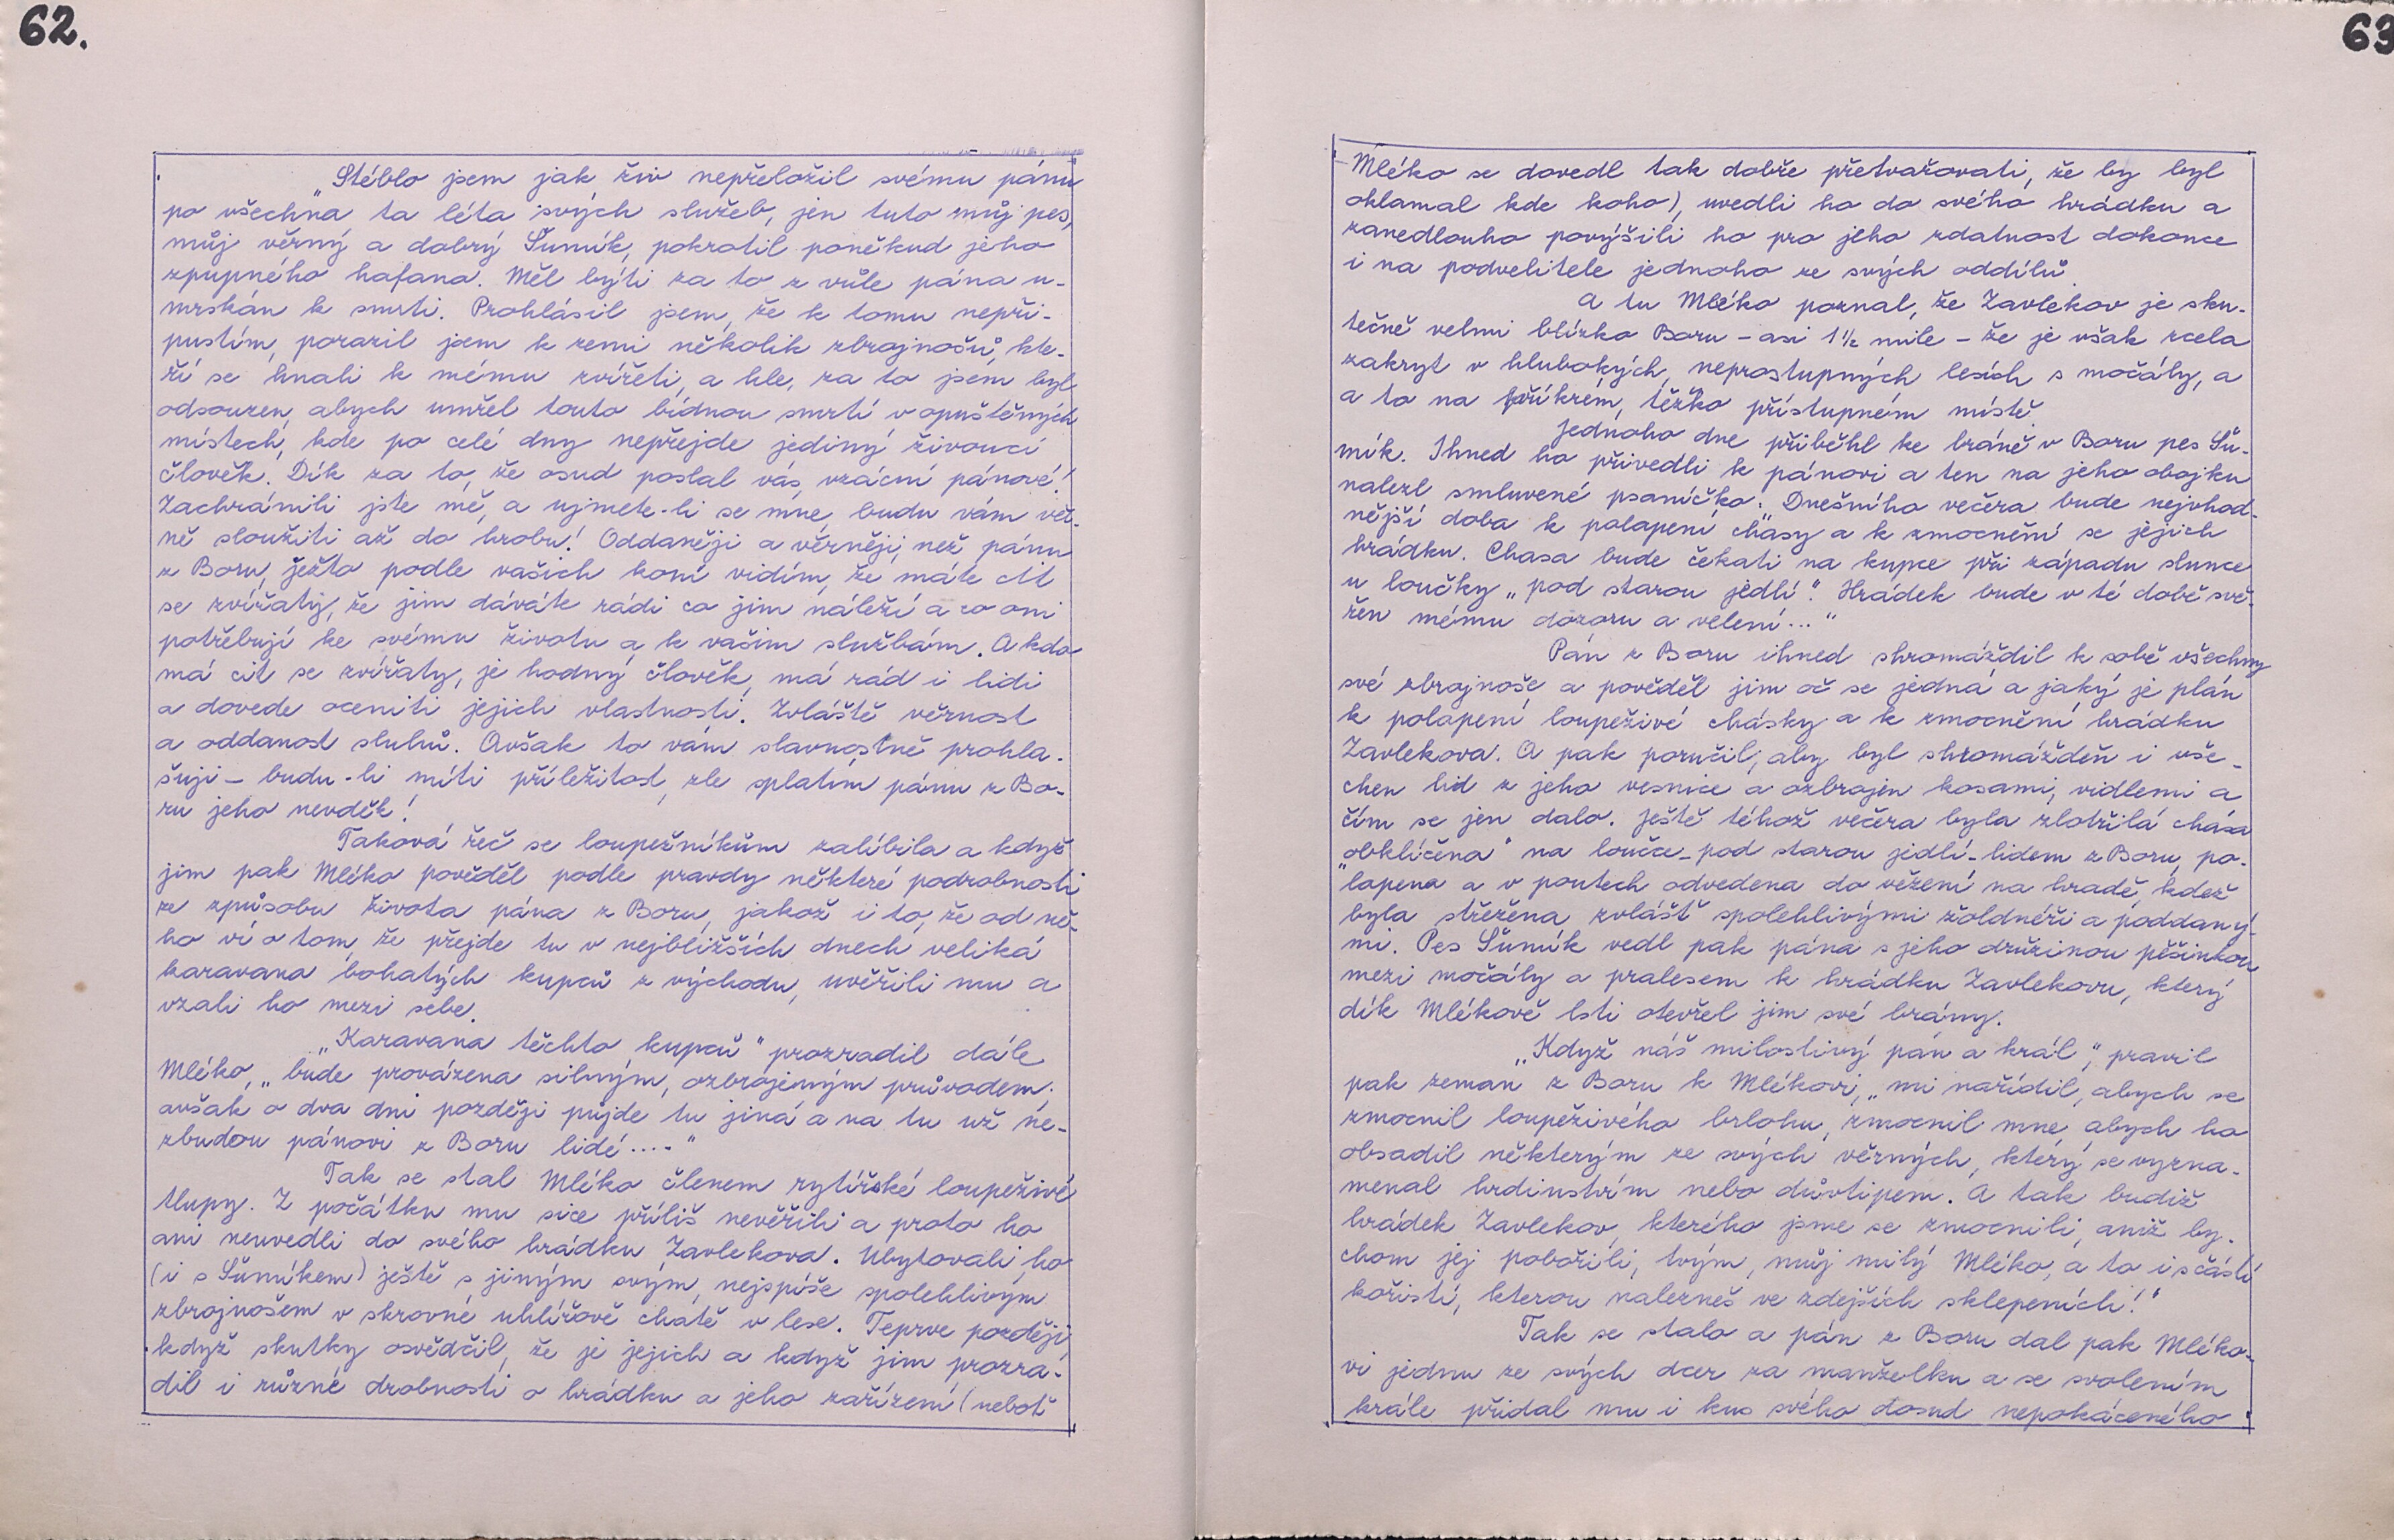 62.
„Stéblo jsem jak živ nepřeložil svému pánu
po všechna ta léta svých služeb, jen tuto můj pes,
můj věrný a dobrý Šumík, pokrotil poněkud jeho
zpupného hafana. Měl býti za to z vůle pána u-
mrskán k smrti. Prohlásil jsem, že k tomu nepři-
pustím, porazil jsem k zemi několik zbrojnošů, kte-
ří se hnali k mému zvířeti, a hle, za to jsem byl
odsouzen, abych umřel touto bídnou smrtí v opuštěných
místech, kde po celé dny nepřejde jediný živoucí
člověk. Dík za to, že osud poslal vás, vzácní pánové!
Zachránili jste mě, a ujmete-li se mne, budu vám věr-
ně sloužiti až do hrobu! Oddaněji a věrněji, než pánu
z Boru, ježto podle vašich koní vidím, že máte cit
se zvířaty, že jim dáváte rádi co jim náleží a co oni
potřebují ke svému životu a k vašim službám. A kdo
má cit se zvířaty, je hodný člověk, má rád i lidi
a dovede oceniti jejich vlastnosti. Zvláště věrnost
a oddanost sluhů. Avšak to vám slavnostně prohla-
šuji – budu-li míti příležitost, zle splatím pánu z Bo-
ru jeho nevděk!
Taková řeč se loupežníkům zalíbila a když
jim pak Mléko pověděl podle pravdy některé podrobnosti
ze způsobu života pána z Boru, jakož i to, že od ně-
ho ví o tom, že přejde tu v nejbližších dnech veliká
karavana bohatých kupců z východu, uvěřili mu a
vzali ho mezi sebe.
„Karavana těchto kupců" prozradil dále
Mléko, „bude provázena silným, ozbrojeným průvodem,
avšak o dva dni později půjde tu jiná a na tu už ne-
zbudou pánovi z Boru lidé...."
Tak se stal Mléko členem rytířské loupeživé
tlupy. Z počátku mu sice příliš nevěřili a proto ho
ani neuvedli do svého hrádku Zavlekova. Ubytovali ho
(i s Šumíkem) ještě s jiným svým, nejspíše spolehlivým
zbrojnošem v skrovné uhlířově chatě v lese. Teprve později,
když skutky osvědčil, že je jejich a když jim prozra-
dil i různé drobnosti o hrádku a jeho zařízení (neboť
63
Mléko se dovedl tak dobře přetvařovati, že by byl
oklamal kde koho), uvedli ho do svého hrádku a
zanedlouho povýšili ho pro jeho zdatnost dokonce
i na podvelitele jednoho ze svých oddílů.
A tu Mléko poznal, že Zavlekov je sku-
tečně velmi blízko Boru – asi 1½ míle – že je však zcela
zakryt v hlubokých, neprostupných lesích s močály, a
a to na příkrém, těžko přístupném místě.
Jednoho dne přiběhl ke bráně v Boru pes Šu-
mík. Ihned ho přivedli k pánovi a ten na jeho obojku
nalezl smluvené psaníčko: „Dnešního večera bude nejvhod-
nější doba k polapení chasy a k zmocnění se jejich
hrádku. Chasa bude čekati na kupce při západu slunce
u loučky „pod starou jedlí". Hrádek bude v té době svě-
řen mému dozoru a velení..."
Pán z Boru ihned shromáždil k sobě všechny
své zbrojnoše, a pověděl jim oč se jedná a jaký je plán
k polapení loupeživé chásky a k zmocnění hrádku
Zavlekova. A pak poručil, aby byl shromážděn i vše-
chen lid z jeho vesnice a ozbrojen kosami, vidlemi a
čím se jen dalo. Ještě téhož večera byla zlotřilá chasa
„obklíčena" na loučce – pod starou jedlí – lidem z Boru, po-
lapena a v poutech odvedena do vězení na hradě, kdež
byla střežena zvlášť spolehlivými žoldnéři a poddaný-
mi. Pes Šumík vedl pak pána s jeho družinou pěšinkou
mezi močály a pralesem k hrádku Zavlekovu, který
dík Mlékově lsti otevřel jim své brány.
„Když náš milostivý pán a král," pravil
pak zeman z Boru k Mlékovi, „mi nařídil, abych se
zmocnil loupeživého brlohu, zmocnil mne, abych ho
obsadil některým ze svých věrných, který se vyzna-
menal hrdinstvím nebo důvtipem. A tak budiž
hrádek Zavlekov, kterého jsme se zmocnili, aniž by-
chom jej pobořili, tvým, můj milý Mléko, a to i s částí
kořisti, kterou nalezneš ve zdejších sklepeních!"
Tak se stalo a pán z Boru dal pak Mléko-
vi jednu ze svých dcer za manželku a se svolením
krále přidal mu i kus svého dosud nepokáceného